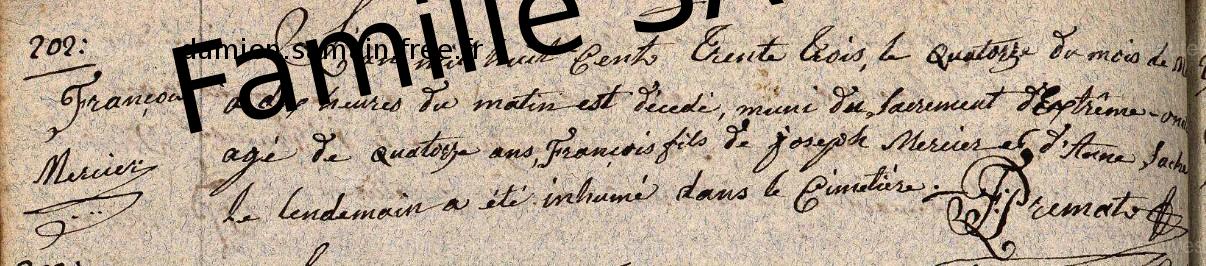 202:
François
Mercier
Famille SA
damien.samain.free.fr
L'an mil huit Cents Trente trois, le quatorze du mois de
à dix heures du matin est décedé, muni du sacrement d'Extrême-
agé de quatorze ans François fils de joseph Mercier et d'Anne
le lendemain a été inhumé dans le Cimetière.